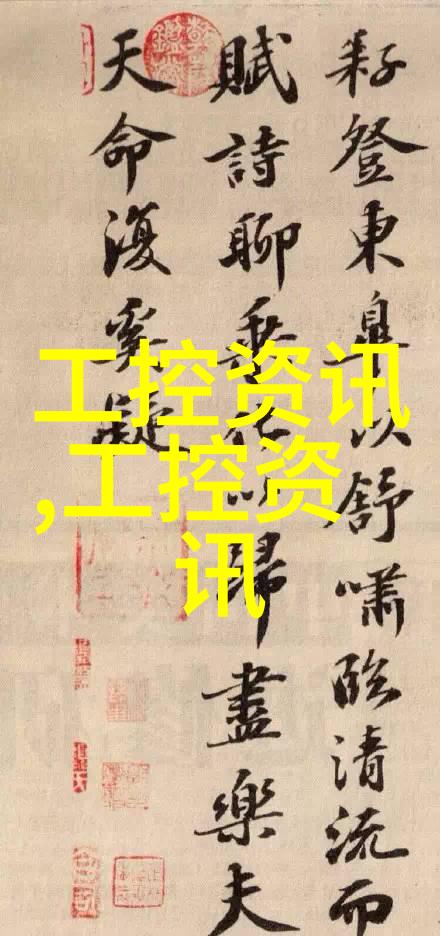 耔登東皋以舒嘯臨清流而
賦詩聊乘化以歸盡樂夫
天命復奚疑
工控资讯
,工控资
讯